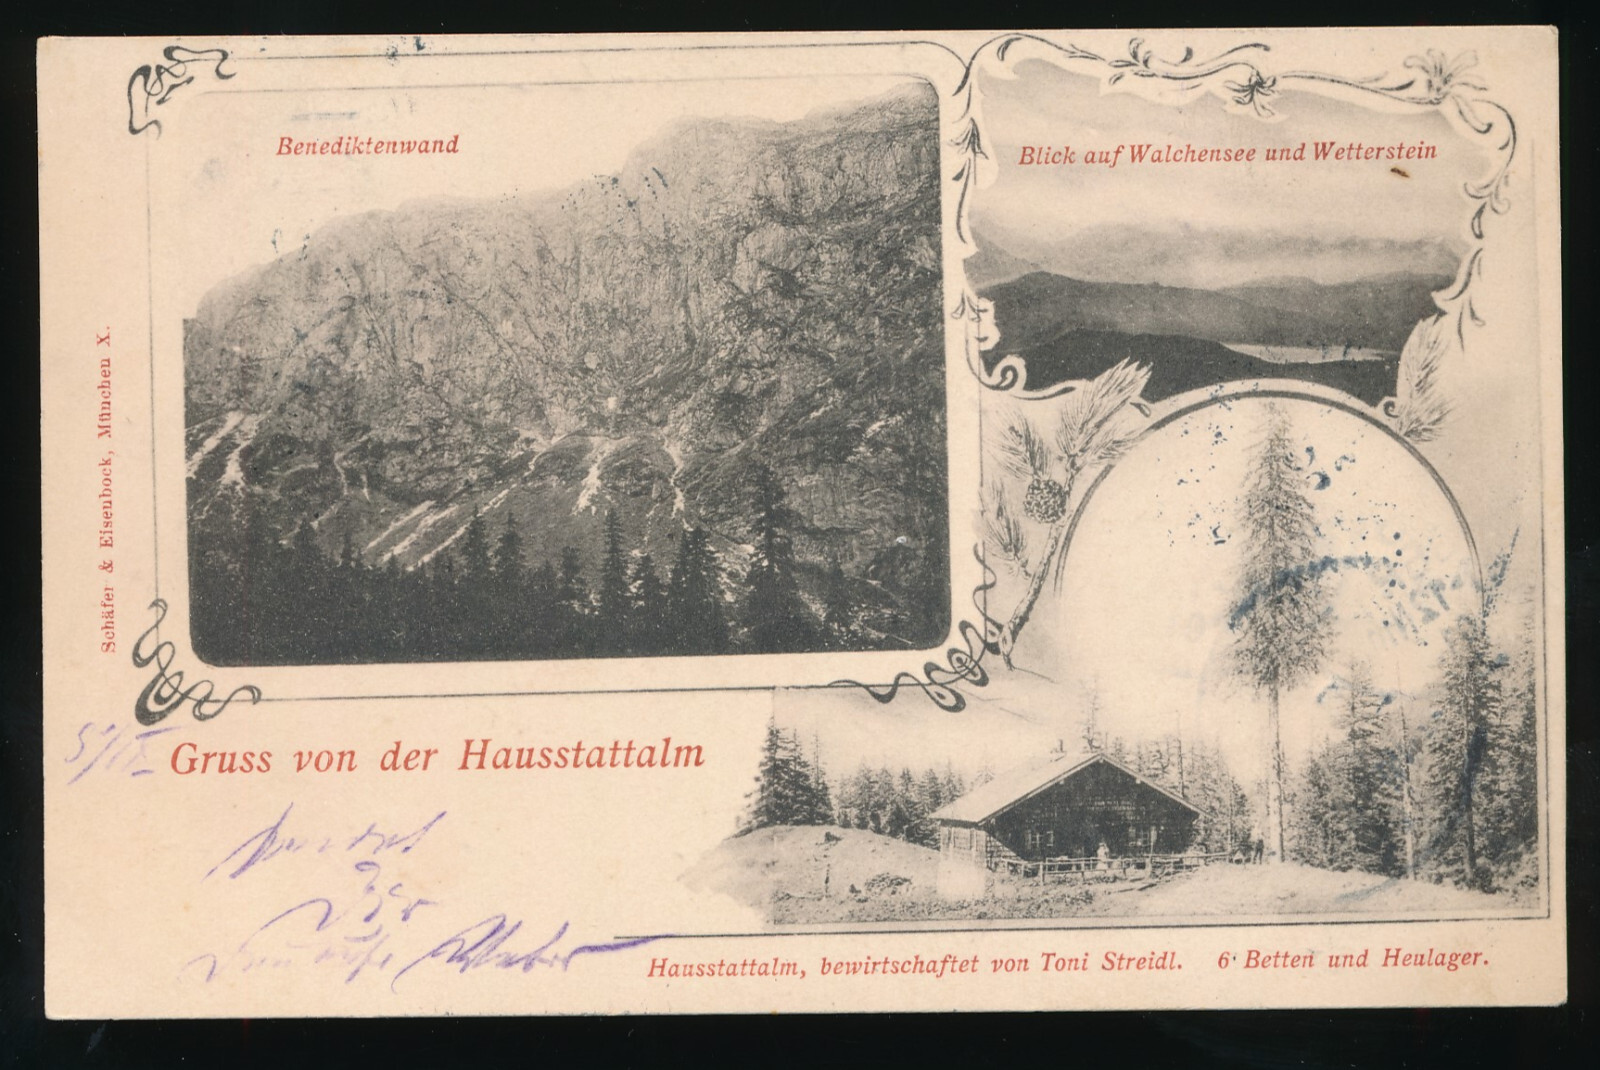 Benediktenwand
Blick auf Walchensee und Wetterstein
Schäfer & Eisenbock, München X.
Gruss von der Hausstattalm
Hausstattalm, bewirtschaftet von Toni Streidl. 6 Betten und Heulager.